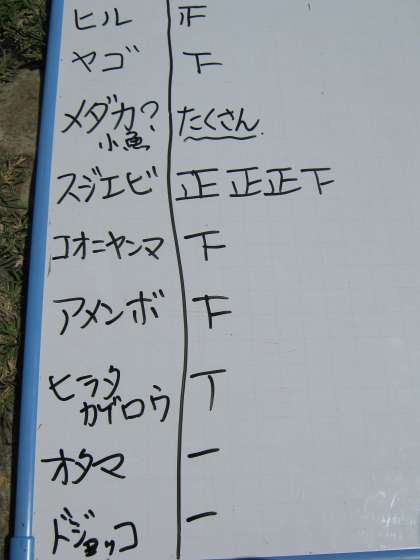 ヒル 正
ヤゴ 下
メダカ? たくさん
小魚
スジエビ 正 正 正 下
コオニヤンマ 下
アメンボ 下
ヒラタ 丅
カゲロウ
オタマ 一
ドジョッコ 一